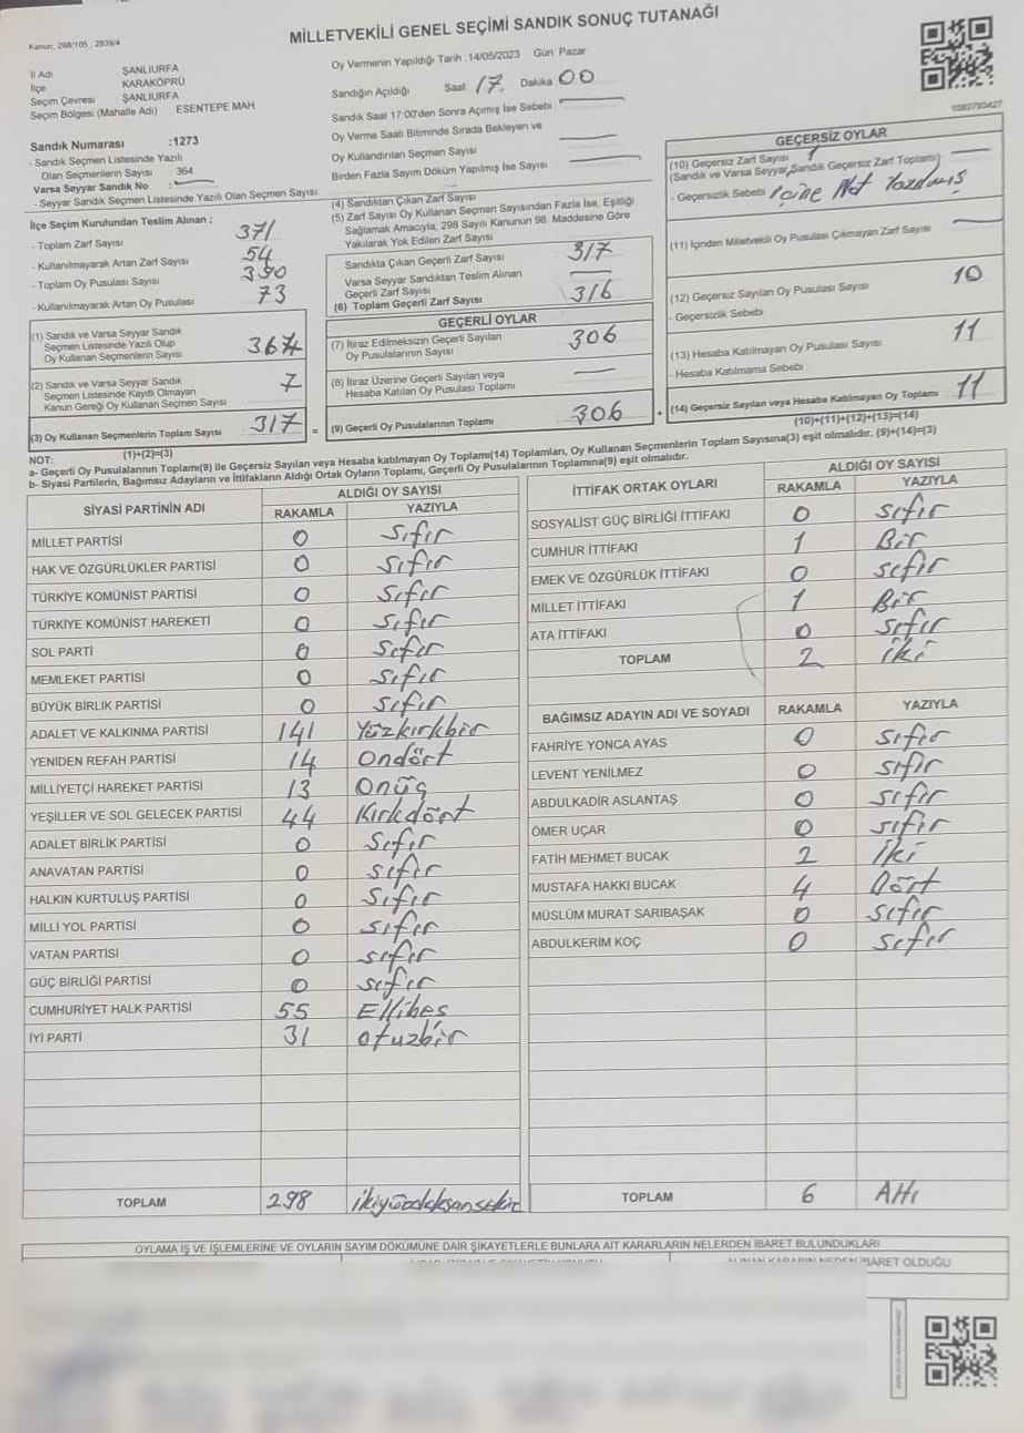 MİLLETVEKİLİ GENEL SEÇİMİ SANDIK SONUÇ TUTANAĞI
Kanun: 298/105 ; 2839/4
İl Adı ŞANLIURFA
İlçe KARAKÖPRÜ
Seçim Çevresi ŞANLIURFA
Seçim Bölgesi (Mahalle Adı) ESENTEPE MAH
Sandık Numarası :1273
- Sandık Seçmen Listesinde Yazılı
Olan Seçmenlerin Sayısı 364
Varsa Seyyar Sandık No :
- Seyyar Sandık Seçmen Listesinde Yazılı Olan Seçmen Sayısı:
Oy Vermenin Yapıldığı Tarih :14/05/2023 Gün: Pazar
Sandığın Açıldığı Saat 17. Dakika 00
Sandık Saat 17:00'den Sonra Açılmış İse Sebebi
Oy Verme Saati Bitiminde Sırada Bekleyen ve
Oy Kullandırılan Seçmen Sayısı
Birden Fazla Sayım Döküm Yapılmış İse Sayısı
İlçe Seçim Kurulundan Teslim Alınan ;
- Toplam Zarf Sayısı 371
- Kullanılmayarak Artan Zarf Sayısı 54
- Toplam Oy Pusulası Sayısı 390
- Kullanılmayarak Artan Oy Pusulası 73
(1) Sandık ve Varsa Seyyar Sandık
Seçmen Listesinde Yazılı Olup
Oy Kullanan Seçmenlerin Sayısı
(2) Sandık ve Varsa Seyyar Sandık
Seçmen Listesinde Kayıtlı Olmayan
Kanun Gereği Oy Kullanan Seçmen Sayısı 7
(3) Oy Kullanan Seçmenlerin Toplam Sayısı 317 =
(1)+(2)=(3)
(4) Sandıktan Çıkan Zarf Sayısı
(5) Zarf Sayısı Oy Kullanan Seçmen Sayısından Fazla İse, Eşitliği
Sağlamak Amacıyla, 298 Sayılı Kanunun 98. Maddesine Göre
Yakılarak Yok Edilen Zarf Sayısı
Sandıkta Çıkan Geçerli Zarf Sayısı 317
Varsa Seyyar Sandıktan Teslim Alınan
Geçerli Zarf Sayısı
(6) Toplam Geçerli Zarf Sayısı 316
GEÇERLİ OYLAR
(7) İtiraz Edilmeksizin Geçerli Sayılan
Oy Pusulalarının Sayısı 306
(8) İtiraz Üzerine Geçerli Sayılan veya
Hesaba Katılan Oy Pusulası Toplamı
(9) Geçerli Oy Pusulalarının Toplamı 306 +
GEÇERSİZ OYLAR
(10) Geçersiz Zarf Sayısı 1
(Sandık ve Varsa Seyyar Sandık Geçersiz Zarf Toplamı)
- Geçersizlik Sebebi İçine Not Yazılmış
(11) İçinden Milletvekili Oy Pusulası Çıkmayan Zarf Sayısı
(12) Geçersiz Sayılan Oy Pusulası Sayısı 10
- Geçersizlik Sebebi
(13) Hesaba Katılmayan Oy Pusulası Sayısı 11
- Hesaba Katılmama Sebebi
(14) Geçersiz Sayılan veya Hesaba Katılmayan Oy Toplamı 11
(10)+(11)+(12)+(13)=(14)
NOT:
a- Geçerli Oy Pusulasının Toplamı(9) ile Geçersiz Sayılan veya Hesaba katılmayan Oy Toplamı(14) Toplamları, Oy Kullanan Seçmenlerin Toplam Sayısına(3) eşit olmalıdır. (9)+(14)=(3)
b- Siyasi Partilerin, Bağımsız Adayların ve İttifakların Aldığı Ortak Oyların Toplamı, Geçerli Oy Pusulalarının Toplamına(9) eşit olmalıdır.
SİYASİ PARTİNİN ADI ALDIĞI OY SAYISI
RAKAMLA YAZIYLA
MİLLET PARTİSİ 0 Sıfır
HAK VE ÖZGÜRLÜKLER PARTİSİ 0 Sıfır
TÜRKİYE KOMÜNİST PARTİSİ 0 Sıfır
TÜRKİYE KOMÜNİST HAREKETİ 0 Sıfır
SOL PARTİ 0 Sıfır
MEMLEKET PARTİSİ 0 Sıfır
BÜYÜK BİRLİK PARTİSİ 0 Sıfır
ADALET VE KALKINMA PARTİSİ 141 Yüzkırkbir
YENİDEN REFAH PARTİSİ 14 Ondört
MİLLİYETÇİ HAREKET PARTİSİ 13 Onüç
YEŞİLLER VE SOL GELECEK PARTİSİ 44 Kırkdört
ADALET BİRLİK PARTİSİ 0 Sıfır
ANAVATAN PARTİSİ 0 Sıfır
HALKIN KURTULUŞ PARTİSİ 0 Sıfır
MİLLİ YOL PARTİSİ 0 Sıfır
VATAN PARTİSİ 0 Sıfır
GÜÇ BİRLİĞİ PARTİSİ 0 Sıfır
CUMHURİYET HALK PARTİSİ 55 Ellibeş
İYİ PARTİ 31 Otuzbir
TOPLAM 298 İkiyüzdoksansekiz
İTTİFAK ORTAK OYLARI ALDIĞI OY SAYISI
RAKAMLA YAZIYLA
SOSYALİST GÜÇ BİRLİĞİ İTTİFAKI 0 Sıfır
CUMHUR İTTİFAKI 1 Bir
EMEK VE ÖZGÜRLÜK İTTİFAKI 0 Sıfır
MİLLET İTTİFAKI 1 Bir
ATA İTTİFAKI 0 Sıfır
TOPLAM 2 İki
BAĞIMSIZ ADAYIN ADI VE SOYADI RAKAMLA YAZIYLA
FAHRİYE YONCA AYAS 0 Sıfır
LEVENT YENİLMEZ 0 Sıfır
ABDULKADİR ASLANTAŞ 0 Sıfır
ÖMER UÇAR 0 Sıfır
FATİH MEHMET BUCAK 2 İki
MUSTAFA HAKKI BUCAK 4 Dört
MÜSLÜM MURAT SARIBAŞAK 0 Sıfır
ABDULKERİM KOÇ 0 Sıfır
TOPLAM 6 Altı
OYLAMA İŞ VE İŞLEMLERİNE VE OYLARIN SAYIM DÖKÜMÜNE DAİR ŞİKAYETLERLE BUNLARA AİT KARARLARIN NELERDEN İBARET BULUNDUKLARI
ALINAN KARARIN NEDEN İBARET OLDUĞU